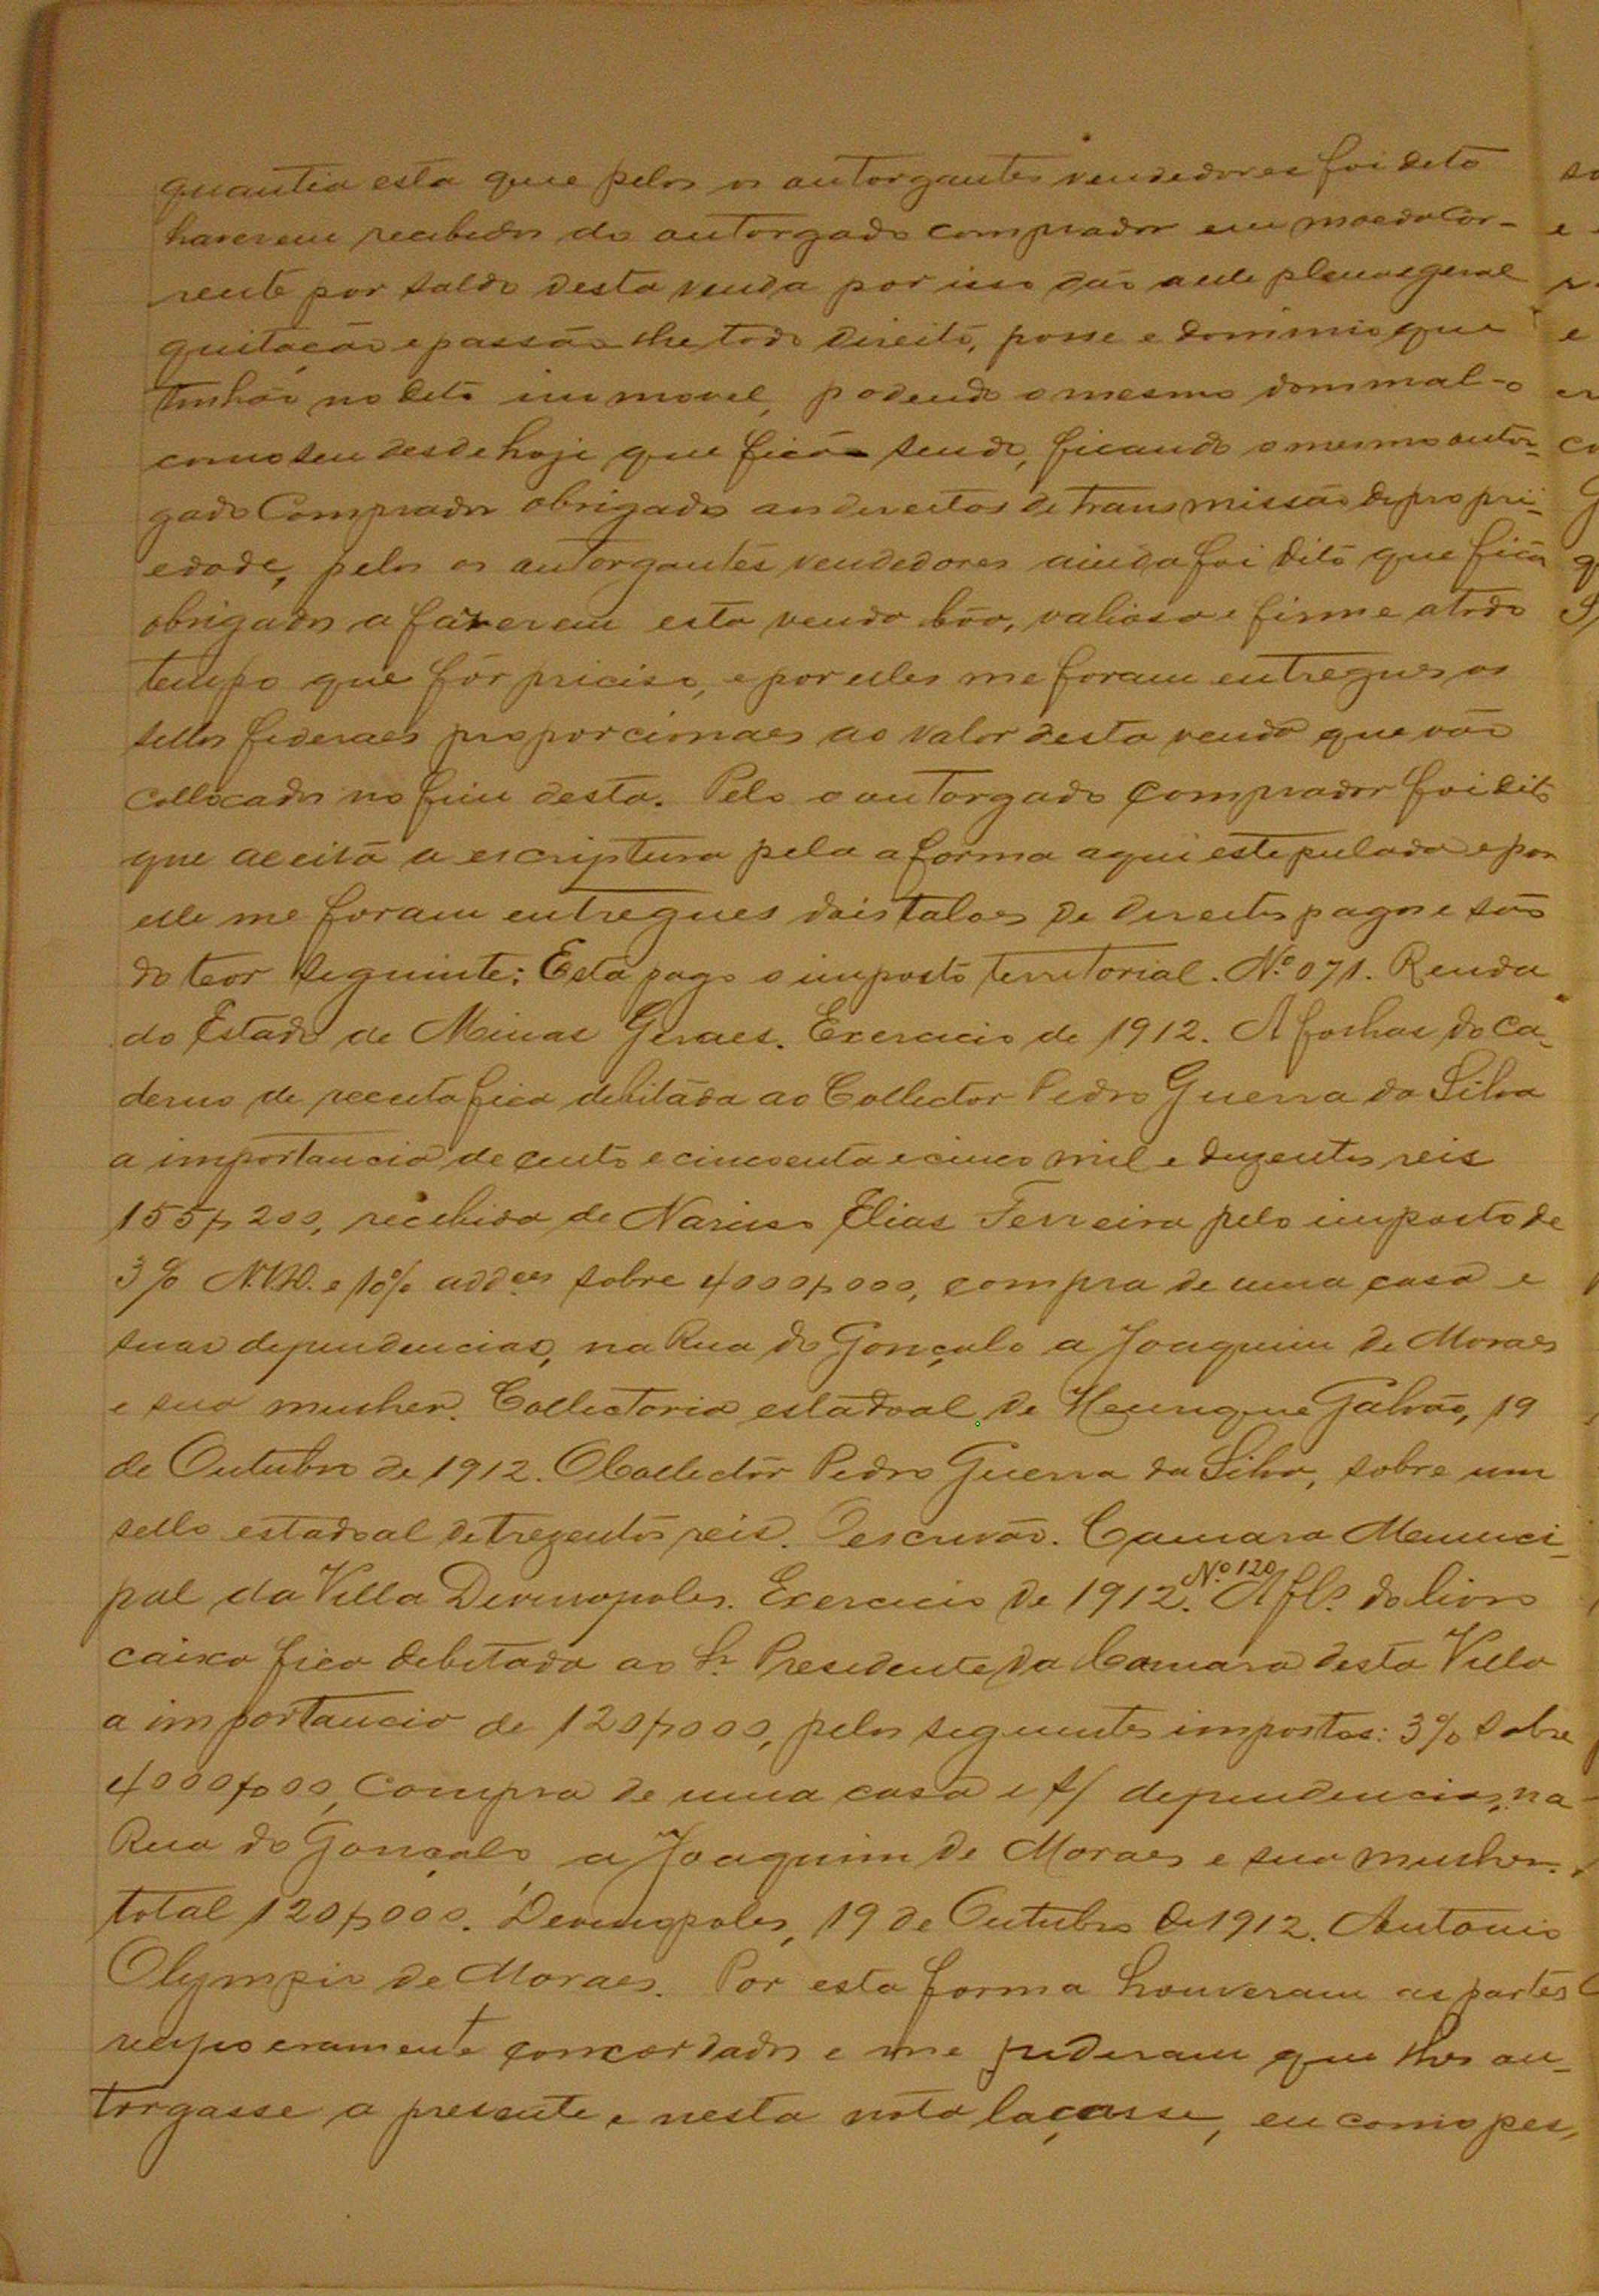 quantia esta que pelos os outorgantes vendedores foi dito
haverem recebidos do outorgado comprador em moeda cor-
rente por saldo desta venda por isso dão a elle plena e geral
quitação e passão-lhe todo direito, posse e dominio que
tinhão no dito immovel, podendo o mesmo dominal-o
como seu desde hoje que fica sendo, ficando o mesmo outor-
gado Comprador obrigado aos direitos de transmissão de propri-
edade, pelos os outorgantes vendedores ainda foi dito que fica
obrigados a fazerem esta venda bôa, valiosa e firme a todo
tempo que fôr preciso, e por elles me foram entregues os
sellos federaes proporcionaes ao valor desta venda que vão
collocados no fim desta. Pelo o outorgado comprador foi dito
que aceita a escriptura pela a forma aqui estepulada e por
elle me foram entregues dois talões de direitos pagos e são
do teor seguinte: Está pago o imposto territorial. Nº 071. Renda
do Estado de Minas Geraes. Exercicio de 1912. A folhas do Ca-
derno de receita fica debitada ao Collector Pedro Guerra da Silva
a importancia de cento e cincoenta e cinco mil e duzentos reis
155$200, recebida de Narciso Elias Ferreira pelo imposto de
3% N.V.D. e 10% add.es sobre 4000$000, compra de uma casa e
suas dependencias, na Rua do Gonçalo a Joaquim de Moraes
e sua mulher. Collectoria estadoal de Henrique Galvão, 19
de Outubro de 1912. O Collector Pedro Guerra da Silva, sobre um
sello estadoal de trezentos reis. O escrivão. Camara Munici-
pal da Villa Divinopoles. Exercicio de 1912. Nº 120 A fls. do livro
caixa fica debitada ao Sr. Presidente da Camara desta Villa
a importancia de 120$000, pelos seguintes impostos: 3% sobre
4000$000, Compra de uma casa e s/ dependencias, na
Rua do Gonçalo, a Joaquim de Moraes e sua mulher.
total 120$000. Devinopoles, 19 de Outubro de 1912. Antonio
Olympio de Moraes. Por esta forma houveram as partes
concordados e me pediram que lhes ou-
torgasse a presente e nesta nota laçasse, eu como pes-